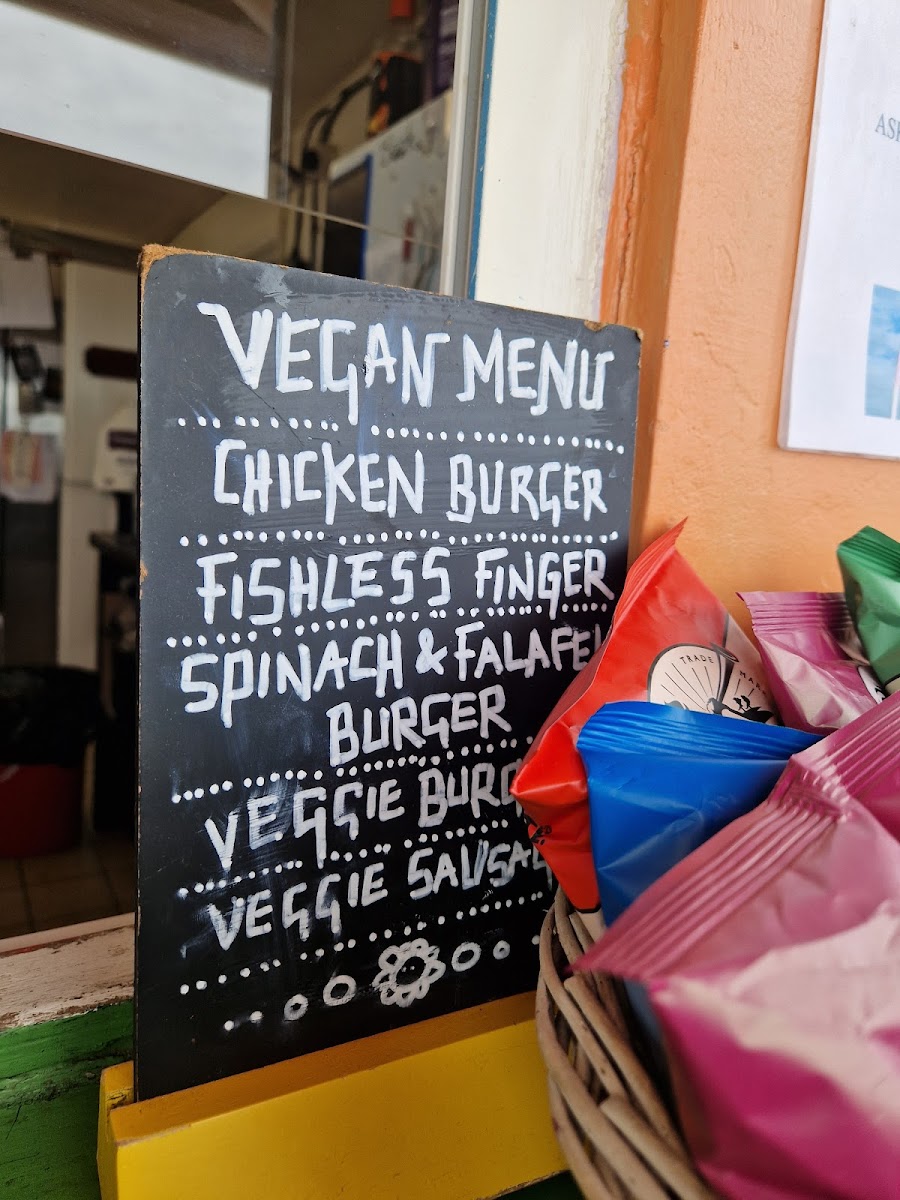 VEGAN MENU
CHICKEN BURGER
FISHLESS FINGER
SPINACH & FALAFEL
BURGER
VEGGIE
VEGGIE
TRADE MARK